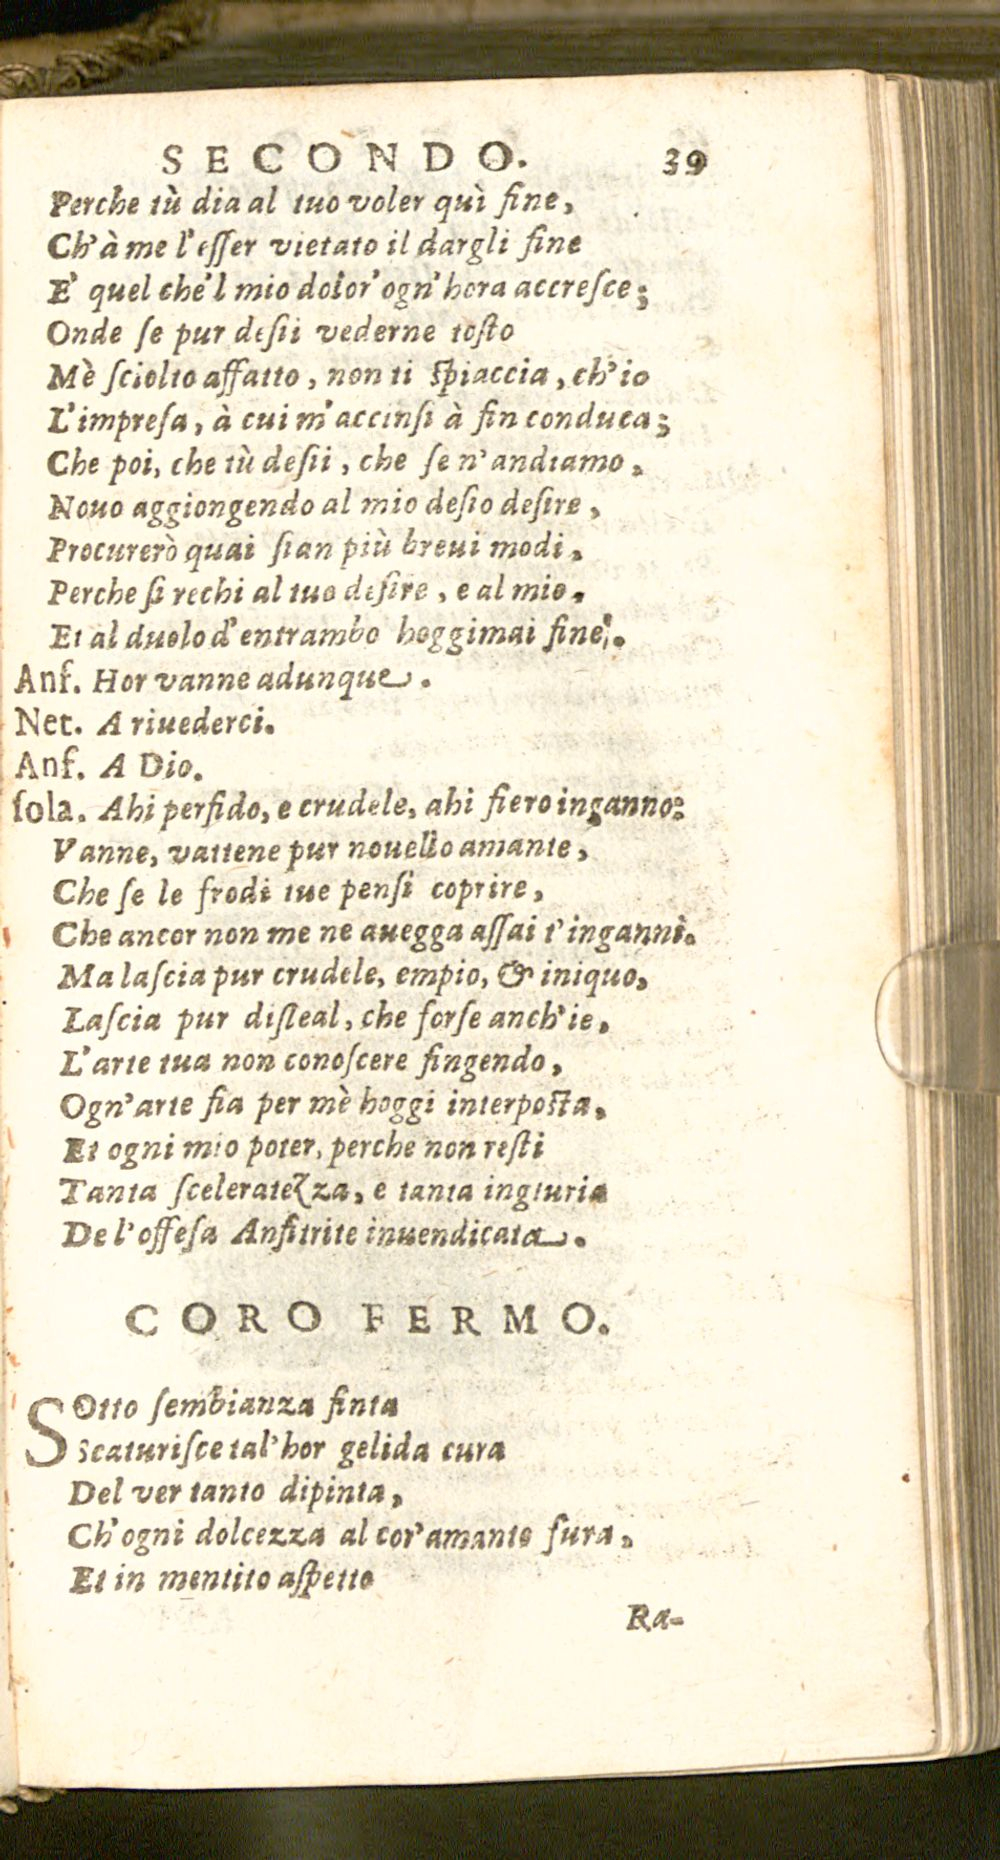 SECONDO. 39
Perche tù dia al tuo voler quì fine,
Ch'à me l'eſſer vietato il dargli fine
E' quel che'l mio dolor'ogn'hora accreſce;
Onde ſe pur deſii vederne toſto
Mè ſciolto affatto, non ti ſpiaccia, ch'io
L'impreſa, à cui m'accinſi à fin conduca;
Che poi, che tù deſii, che ſe n'andiamo,
Nouo aggiongendo al mio deſio deſire,
Procurerò quai ſian più breui modi,
Perche ſi rechi al tuo deſire, e al mio,
Et al duolo d'entrambo hoggimai fine.
Anf. Hor vanne adunque.
Net. A riuederci.
Anf. A Dio.
ſola. Ahi perfido, e crudele, ahi fiero inganno:
Vanne, vattene pur nouello amante,
Che ſe le frodi tue penſi coprire,
Che ancor non me ne auegga aſſai t'inganni.
Ma laſcia pur crudele, empio, & iniquo,
Laſcia pur diſleal, che forſe anch'io,
L'arte tua non conoſcere fingendo,
Ogn'arte fia per mè hoggi interpoſta,
Et ogni mio poter, perche non reſti
Tanta ſceleratezza, e tanta ingiuria
De l'offeſa Anfitrite inuendicata.
CORO FERMO.
SOtto ſembianza finta
Scaturiſce tal'hor gelida cura
Del ver tanto dipinta,
Ch'ogni dolcezza al cor'amante fura,
Et in mentito aſpetto
Ra-